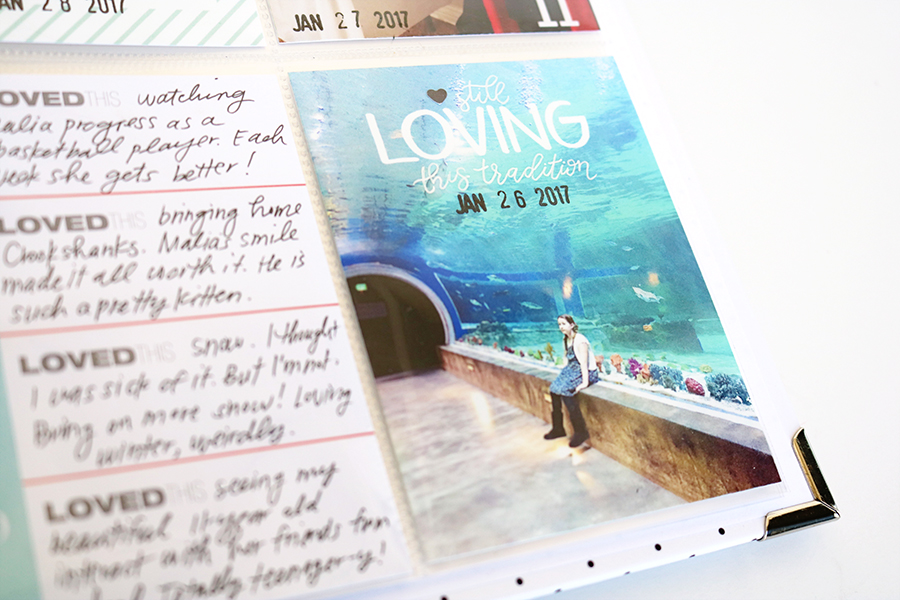 JAN 28 2017
JAN 27 2017
11
LOVED THIS watching
Malia progress as a
basketball player. Each
week she gets better!
LOVED THIS bringing home
Crookshanks. Malia's smile
made it all worth it. He is
such a pretty kitten.
LOVED THIS snow. I thought
I was sick of it. But I'm not.
Bring on more snow! Loving
winter, weirdly.
LOVED THIS seeing my
beautiful 11-year old
interact with her friends from
Totally teenager-y!
still
LOVING
this tradition
JAN 26 2017